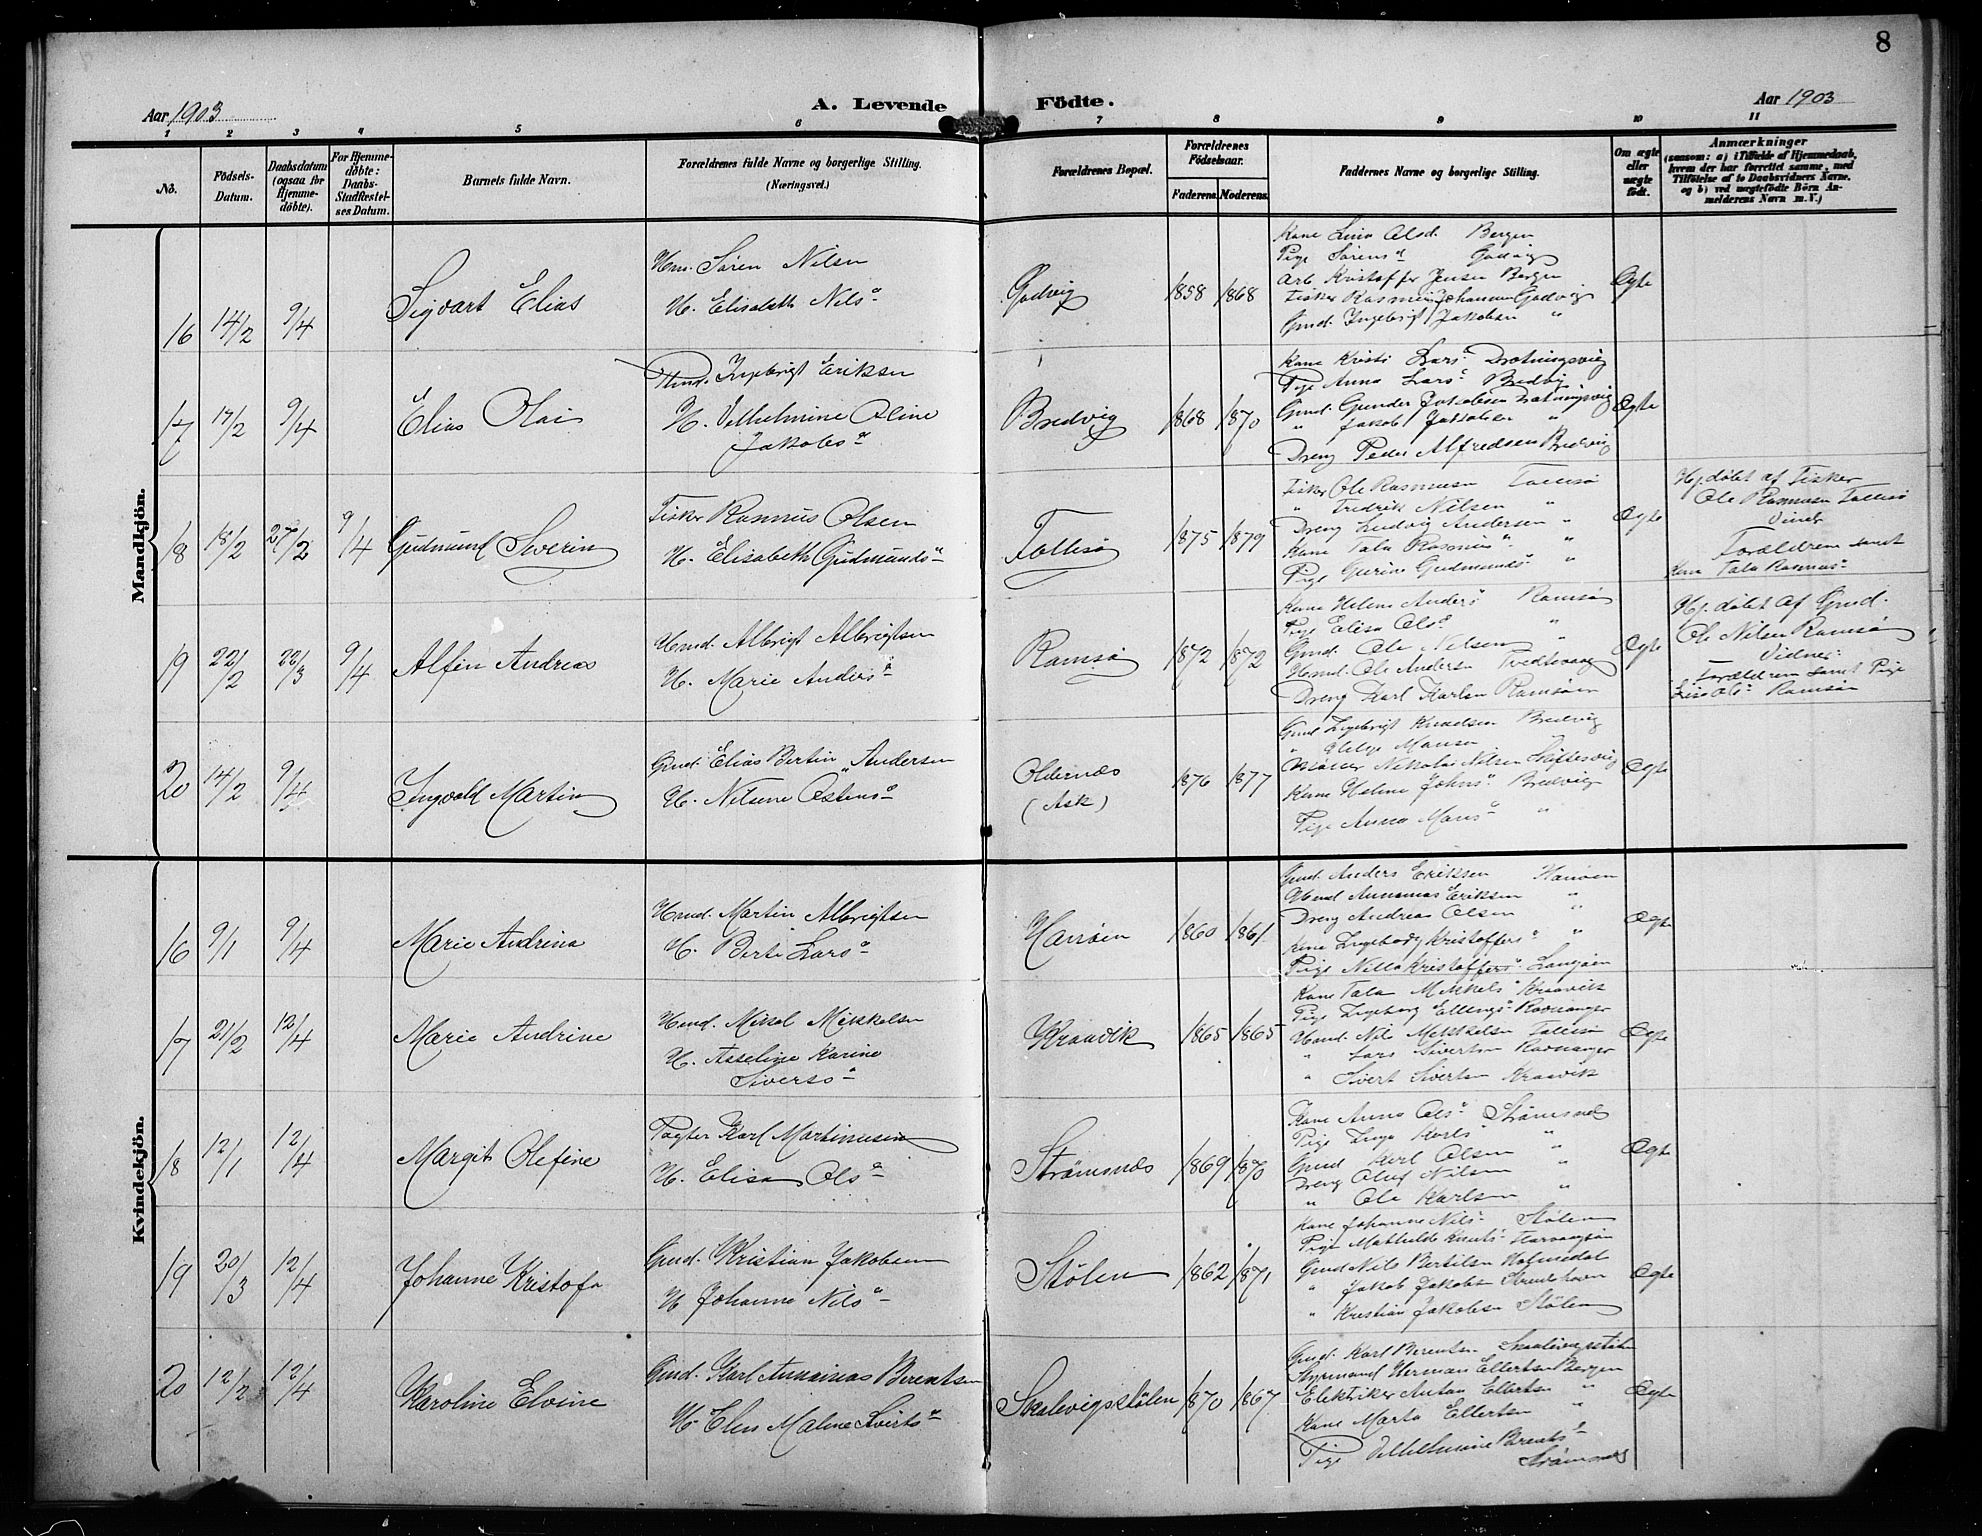 8
Aar 1903
A. Levende Födte.
Aar 1903
1 2 3 4 5 6 7 8 9 10 11
No.
Födsels-Datum.
Daabsdatum (ogsaa for Hjemmedöbte).
For Hjemmedöbte: Daabs-Stadfæstelses Datum.
Barnets fulde Navn.
Forældrenes fulde Navne og borgerlige Stilling. (Næringsvei.)
Forældrenes Bopæl.
Forældrenes Födselsaar.
Faderens. Moderens.
Faddernes Navne og borgerlige Stilling.
Om ægte eller uægte födt.
Anmærkninger
(saasom: a) i Tilfælde af Hjemmedaab, hvem der har forrettet samme, med Tilföielse af to Daabsvidners Navne, og b) ved uægtefödte Börn Anmelderens Navn m. V.)
Mandkjön.
16 14/2 9/4 Sigvart Elias
Hm. Sören Nilsen
H. Elisabeth Nilsd
Godvig 1858 1868
Kone Lina Olsd. Bergen
Pige Sörensd Godvig
Arb Kristoffer Jensen Bergen
Fisker Rasmus Johannes Godvig
Gmd. Ingebrigt Jakobsen "
Ægte
17 17/2 9/4 Elias Olai
Hmd. Ingebrigt Eriksen
H. Vilhelmine Oline
Jakobsd
Bredvig 1868 1870
Kone Kristi Larsd Drotningsvig
Pige Anna Larsd Bredvig
Gmd. Gunder Jakobsen Drotningsvig
" Jakob Jakobsen "
Dreng Peder Alfredsen Bredvig
Ægte
18 18/2 27/2 9/4 Gudmund Severin
Fisker Rasmus Olsen
H. Elisabeth Gudmundsd
Follesø 1875 1879
Fisker Ole Rasmusen Follesö
" Fredrik Nilsen "
Dreng Ludvig Andersen "
Kone Tala Rasmusd "
Pige Gurine Gudmundsd "
Ægte
Hj. döbt af Fisker
Ole Rasmusen Follesö
Forældrene samt
Kone Tala Rasmusd
19 22/2 22/3 9/4 Alfen Andreas
Hmd. Albrigt Albrigtsen
H. Marie Andersd
Ramsö 1872 1872
Kone Helene Andersd Ramsö
Pige Elisa Olsd "
Gmd. Ole Nilsen "
Hmd. Ole Andersen Tvedtevaag
Dreng Karl Karlsen Ramsöen
Ægte
Hj. döbt af Gmd.
Ole Nilsen Ramsö
Vidner:
Forældrene samt Pige
Lisa Olsd Ramsöen
20 14/2 9/4 Ingvald Martin
Gmd. Elias Bertin Andersen
H. Nilsine Østensd
Oldernæs
(Ask)
1876 1877
Gmd Ingebrigt Knudsen Bredvig
" Helge Monsen "
Nikolai Nilsen
Kone Helene Johnsd Bredvig
Pige Anna Monsd "
Ægte
Kvindekjön.
16 9/1 9/4 Marie Andrina
Hmd. Martin Albrigtsen
H. Berte Larsd
Hanöen 1860 1861
Gmd. Anders Eriksen Hanöen
Hmd Annanias Eriksen "
Dreng Andreas Olsen "
Kone Ingeborg Kristoffersd "
Pige Nilla Kristoffersd
Ægte
17 21/2 12/4 Marie Andrine
Hmd. Mikal Mikkelsen
H. Asseline Karine
Sivertsd
Kraavik 1865 1865
Kone Tala Mikkelsd Kraavik
Pige Ingeborg Ellingsd Ravnanger
Hmd. Nils Mikkelsen Follesö
" Lars Sivertsen Ravnanger
" Sivert Sivertsen Kraavik
Ægte
18 12/1 12/4 Margit Olefine
Pagter Karl Martinusen
H. Elisa Olsd
Strömsnæs 1869 1870
Kone Anna Olsd Strömsnes
Pige Inga Karlsd "
Gmd Karl Olsen "
Dreng Oluf Nilsen "
" Ole Karlsen "
Ægte
19 20/3 12/4 Johanne Kristofa
Gmd. Kristian Jakobsen
H Johanna Nilsd
Stölen 1862 1871
Kone Johanne Nilsd Stölen
Pige Mathilde Knutsd
Gmd Nils Bertilsen Holmedal
" Jakob Jakobsen
" Kristian Jakobsen Stölen
Ægte
20 12/2 12/4 Karoline Elvine
Gmd. Karl Annanias Berentsen
H. Elen Malene Sivertsd
Skalevigsstölen 1870 1867
Gmd. Karl Berentsen Skalevigsstölen
Styrmand Herman Ellertsen Bergen
Elektriker Anton Ellertsen "
Kone Marta Ellertsen "
Pige Vilhelmine Berentsd
Strömsnes
Ægte